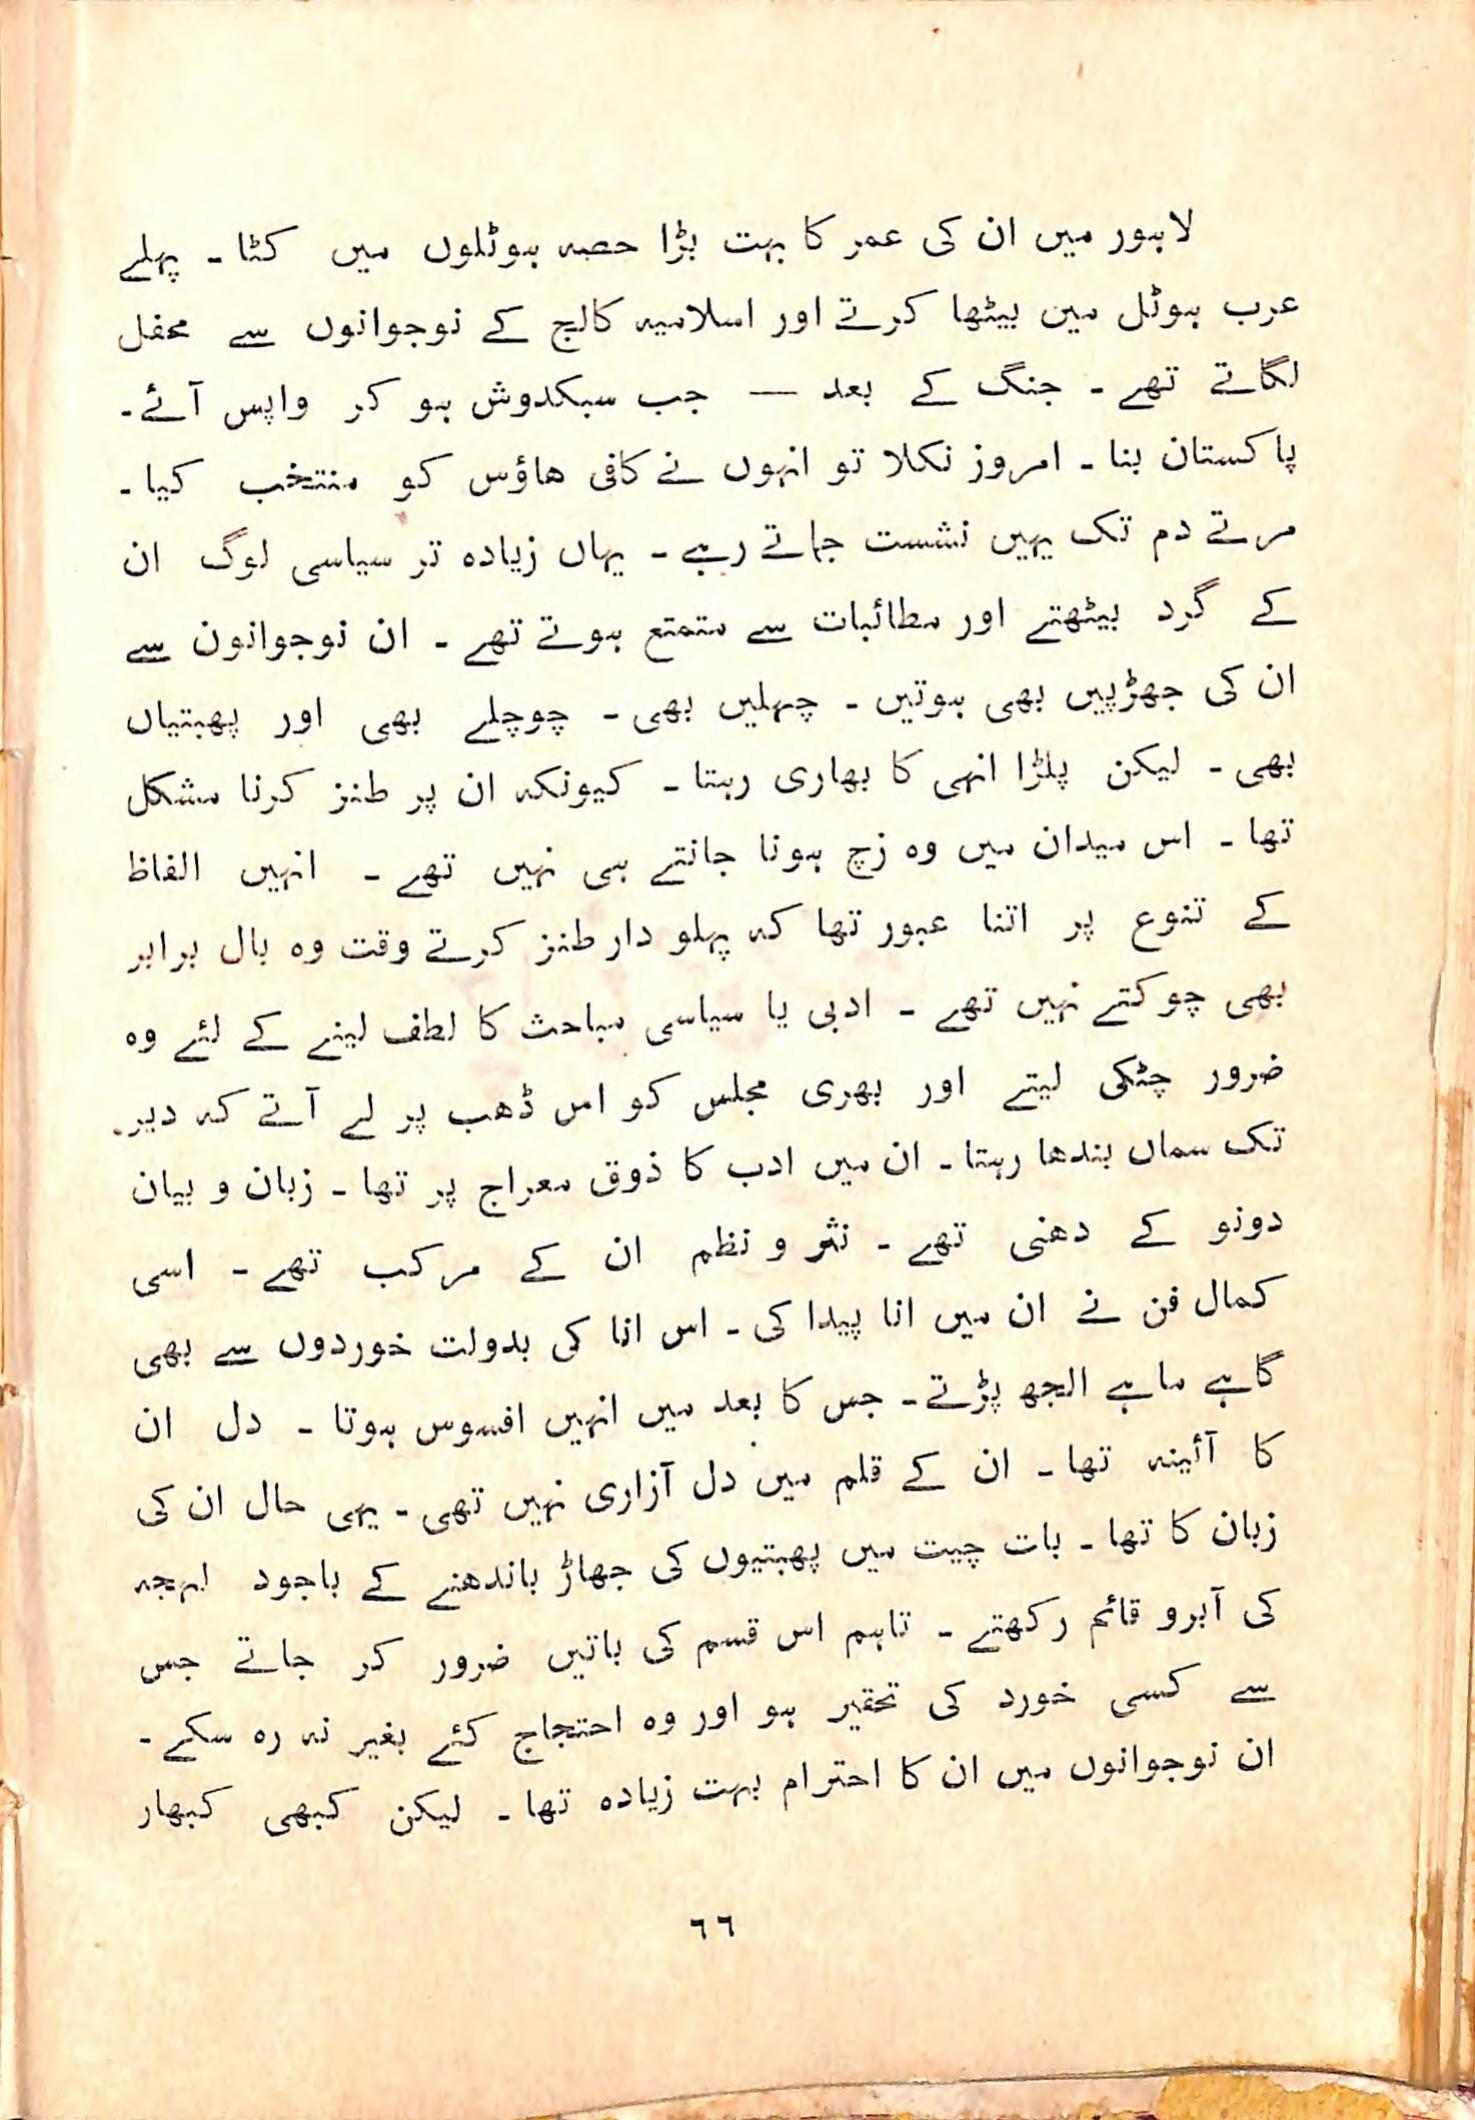 لاہور میں ان کی عمر کا بہت بڑا حصہ ہوٹلوں میں کٹا ۔ پہلے
عرب ہوٹل مین بیٹھا کرتے اور اسلامیہ کالج کے نوجوانوں سے محفل
لگاتے تھے ۔ جنگ کے بعد — جب سبکدوش ہو کر واپس آئے ۔
پاکستان بنا ۔ امروز نکلا تو انہوں نے کافی ھاؤس کو منتخب کیا ۔
مرتے دم تک یہیں نشست جماتے رہے ۔ یہاں زیادہ تر سیاسی لوگ ان
کے گرد بیٹھتے اور مطائبات سے متمتع ہوتے تھے ۔ ان نوجوانون سے
ان کی جھڑپیں بھی ہوتیں ۔ چہلیں بھی ۔ چوچلے بھی اور پھبتیاں
بھی ۔ لیکن پلڑا انہی کا بھاری رہتا ۔ کیونکہ ان پر طنز کرنا مشکل
تھا ۔ اس میدان میں وہ زچ ہونا جانتے ہی نہیں تھے ۔ انہیں الفاظ
کے تنوع پر اتنا عبور تھا کہ پہلو دار طنز کرتے وقت وہ بال برابر
بھی چوکتے نہیں تھے ۔ ادبی یا سیاسی مباحث کا لطف لینے کے لئے وہ
ضرور چٹکی لیتے اور بھری مجلس کو اس ڈھب پر لے آتے کہ دیر
تک سماں بندھا رہتا ۔ ان میں ادب کا ذوق معراج پر تھا ۔ زبان و بیان
دونو کے دھنی تھے ۔ نثر و نظم ان کے مرکب تھے ۔ اسی
کمال فن نے ان میں انا پیدا کی ۔ اس انا کی بدولت خوردوں سے بھی
گاہے ماہے الجھ پڑتے ۔ جس کا بعد میں انہیں افسوس ہوتا ۔ دل ان
کا آئینہ تھا ۔ ان کے قلم میں دل آزاری نہیں تھی ۔ یہی حال ان کی
زبان کا تھا ۔ بات چیت میں پھبتیوں کی جھاڑ باندھنے کے باجود لہجہ
کی آبرو قائم رکھتے ۔ تاہم اس قسم کی باتیں ضرور کر جاتے جس
سے کسی خورد کی تحقیر ہو اور وہ احتجاج کئے بغیر نہ رہ سکے ۔
ان نوجوانوں میں ان کا احترام بہت زیادہ تھا ۔ لیکن کبھی کبھار
٦٦